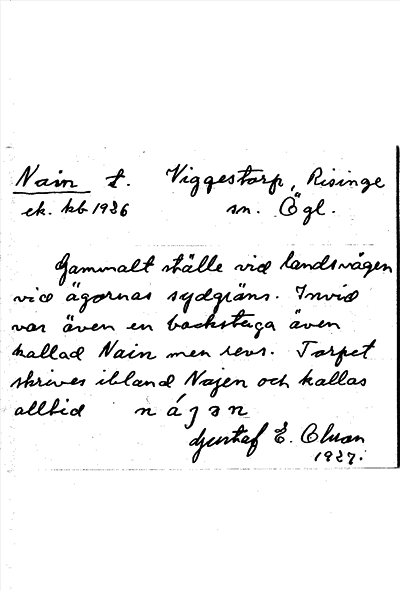 Nain t. Viggestorp, Risinge
ek. kb 1926 sn. Ögl.
Gammalt ställe vid landsvägen
vid ägornas sydgräns. Invid
var även en backstuga även
kallad Nain men revs. Torpet
skrives ibland Najen och kallas
alltid nájən
Gustaf E. Olsson
1927.